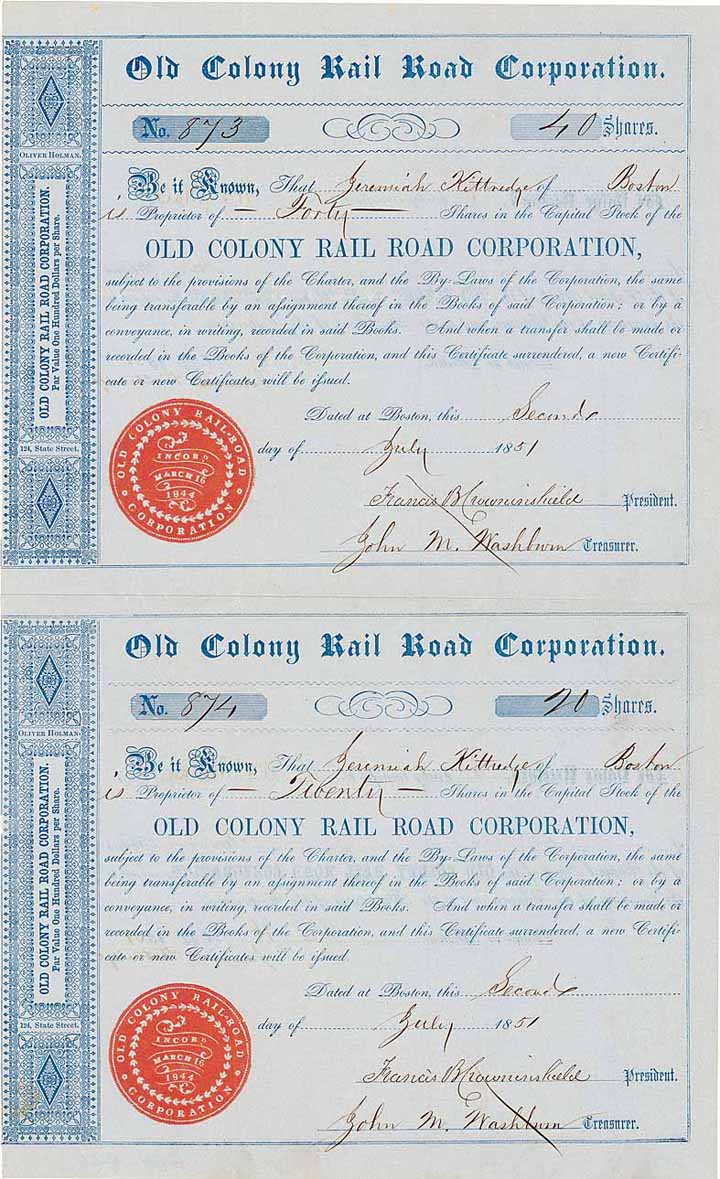 Old Colony Rail Road Corporation.
No. 873 40 Shares.
OLIVER HOLMAN.
OLD COLONY RAIL ROAD CORPORATION.
Par Value One Hundred Dollars per Share.
124, State Street.
Be it Known, That Jeremiah Kittredge of Boston
is Proprietor of — Forty — Shares in the Capital Stock of the
OLD COLONY RAIL ROAD CORPORATION,
subject to the provisions of the Charter, and the By-Laws of the Corporation, the same
being transferable by an aſsignment thereof in the Books of said Corporation; or by a
conveyance, in writing, recorded in said Books. And when a transfer shall be made or
recorded in the Books of the Corporation, and this Certificate surrendered, a new Certifi-
cate or new Certificates will be iſsued.
Dated at Boston, this Second
day of July 1851
Francis B Crowninshield President.
John M. Washburn Treasurer.
OLD COLONY RAIL-ROAD
CORPORATION
INCORP
MARCH 16
1844
Old Colony Rail Road Corporation.
No. 874 20 Shares.
OLIVER HOLMAN.
OLD COLONY RAIL ROAD CORPORATION.
Par Value One Hundred Dollars per Share.
124, State Street.
Be it Known, That Jeremiah Kittredge of Boston
is Proprietor of — Twenty — Shares in the Capital Stock of the
OLD COLONY RAIL ROAD CORPORATION,
subject to the provisions of the Charter, and the By-Laws of the Corporation, the same
being transferable by an aſsignment thereof in the Books of said Corporation; or by a
conveyance, in writing, recorded in said Books. And when a transfer shall be made or
recorded in the Books of the Corporation, and this Certificate surrendered, a new Certifi-
cate or new Certificates will be iſsued.
Dated at Boston, this Second
day of July 1851
Francis B Crowninshield President.
John M. Washburn Treasurer.
OLD COLONY RAIL-ROAD
CORPORATION
INCORP
MARCH 16
1844